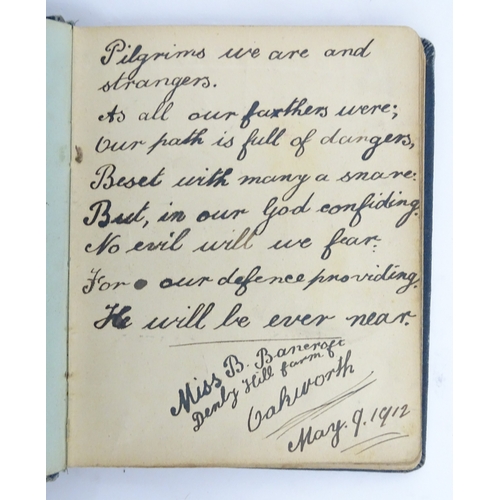 Pilgrims we are and
strangers.
As all our farthers were;
Our path is full of dangers,
Beset with many a snare.
But, in our God confiding.
No evil will we fear.
For our defence providing.
He will be ever near.
Miss B. Bancroft
Denby Hill farm
Oakworth
May. 9. 1912